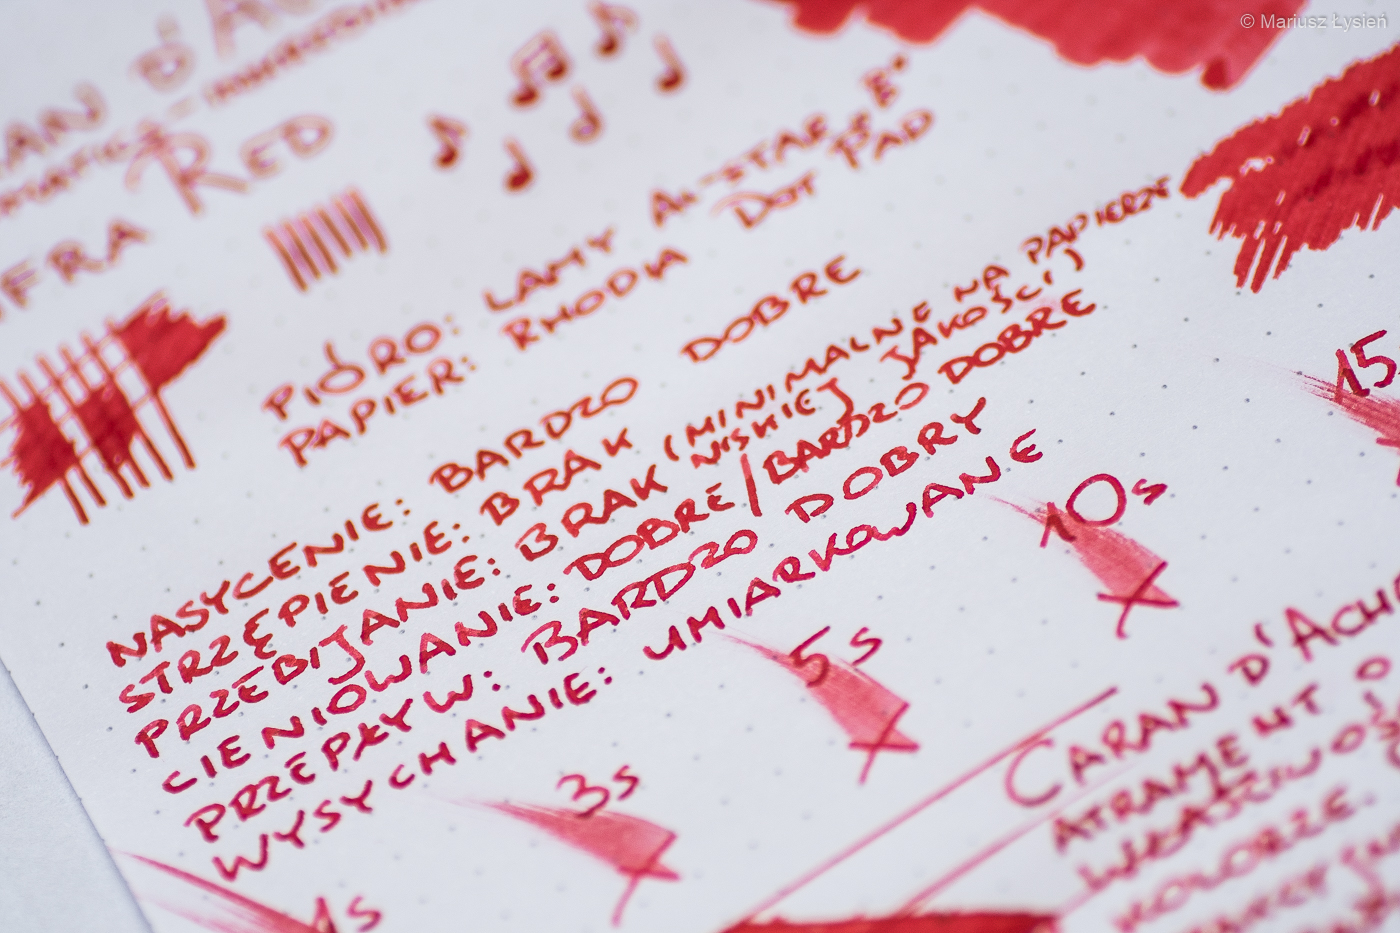 © Mariusz Łysień
RAN d'A
RED
FRA
PIÓRO: LAMY AL-STAR "EF"
PAPIER: RHODIA DOT PAD
NASYCENIE: BARDZO DOBRE
STRZĘPIENIE: BRAK
PRZEBIJANIE: BRAK (MINIMALNE NA PAPIERZE
NISKIEJ JAKOŚCI)
CIENIOWANIE: DOBRE/BARDZO DOBRE
PRZEPŁYW: BARDZO DOBRY
WYSYCHANIE: UMIARKOWANE
1s
3s
5s
10s
15
CARAN D'ACH
ATRAMENT O
KOLORZE.